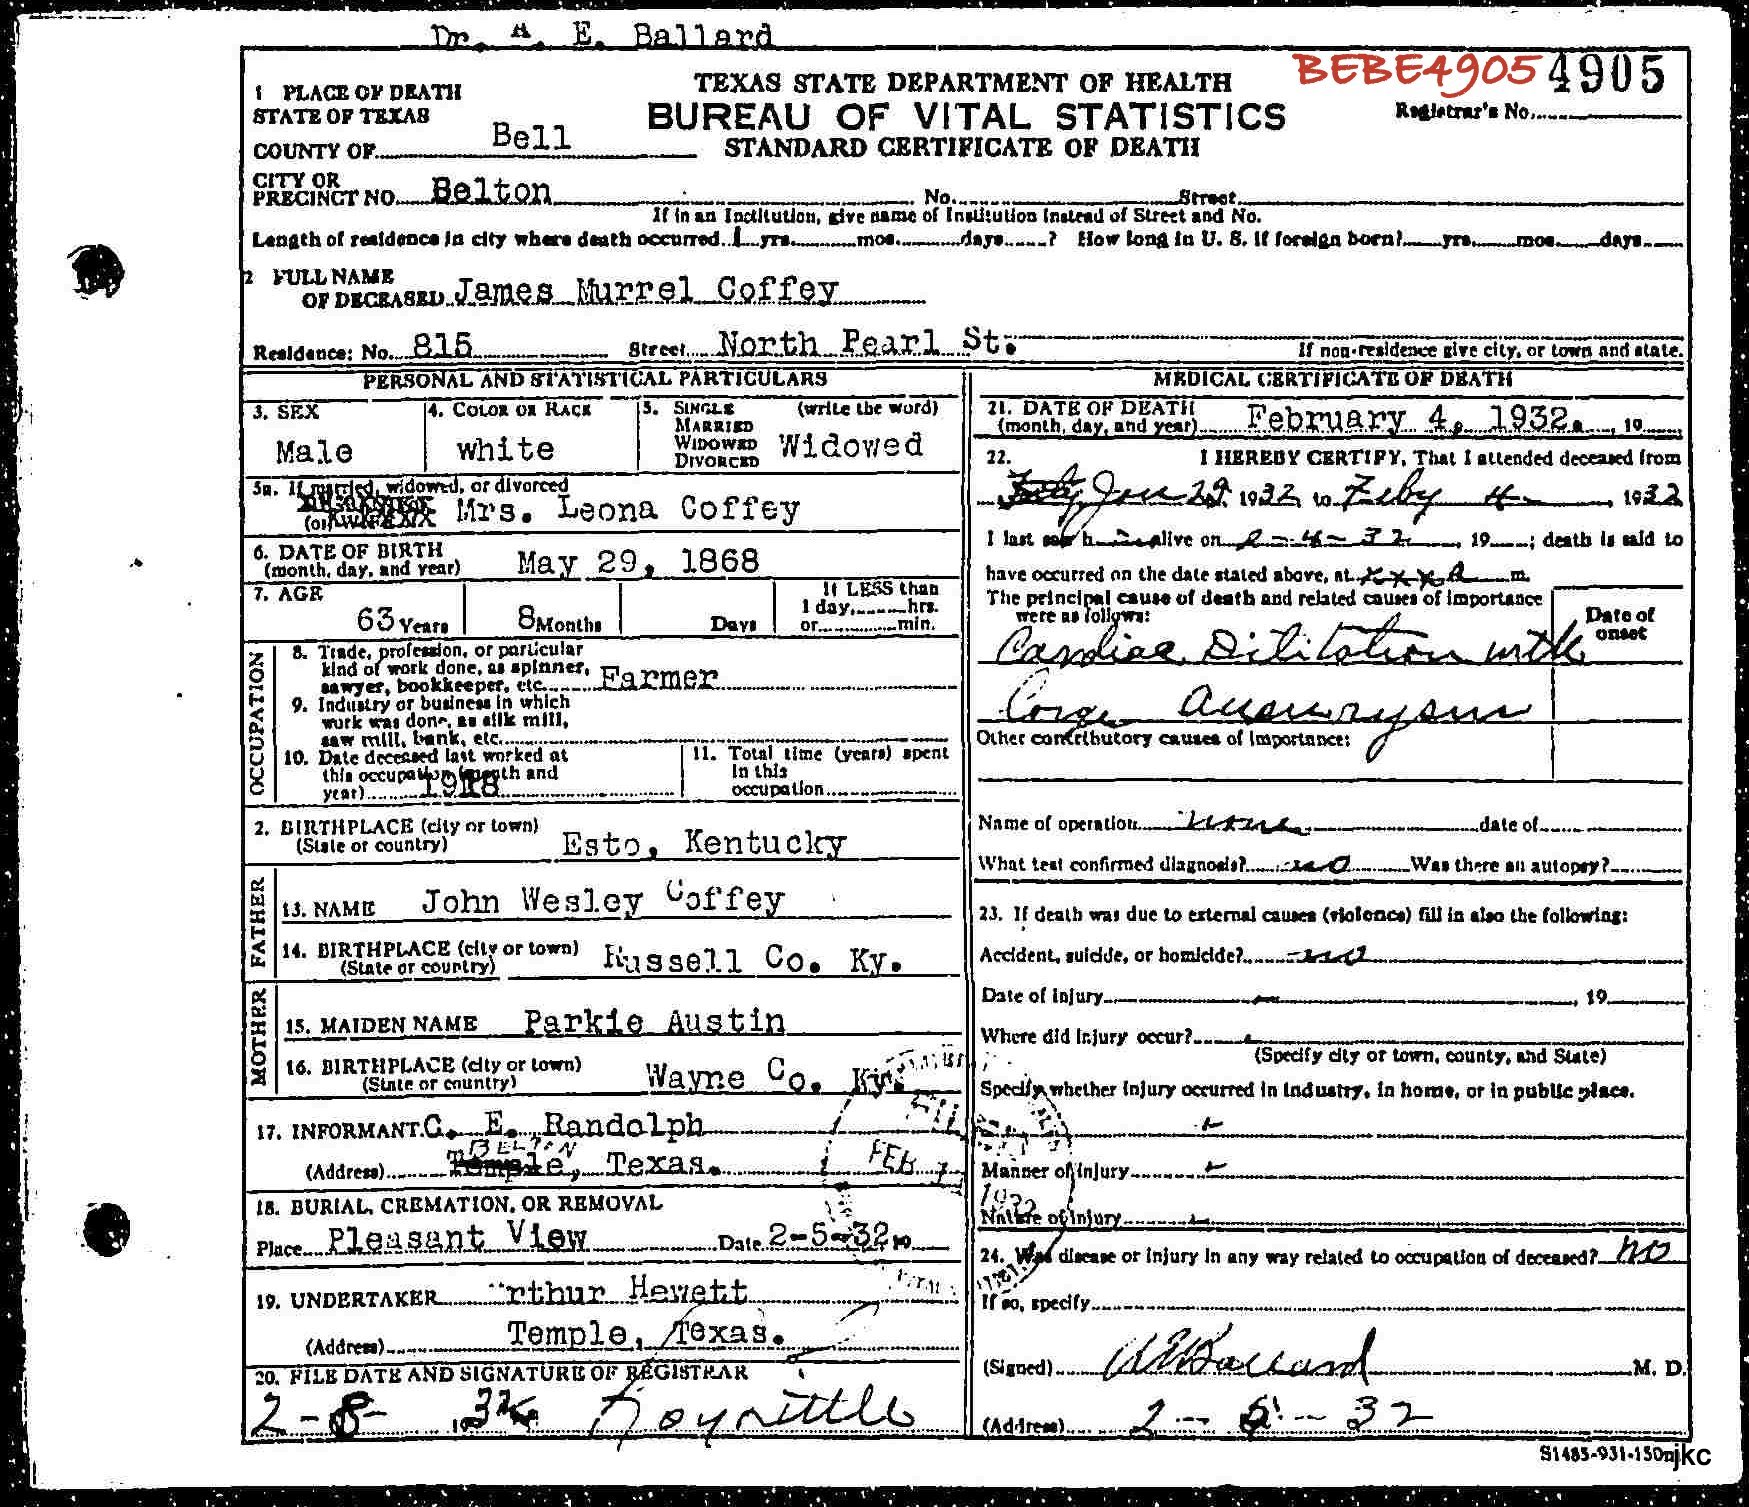 Dr. A. E. Ballard
BEBE4905 4905
TEXAS STATE DEPARTMENT OF HEALTH
BUREAU OF VITAL STATISTICS
STANDARD CERTIFICATE OF DEATH
Registrar's No.
1 PLACE OF DEATH
STATE OF TEXAS
COUNTY OF Bell
CITY OR
PRECINCT NO. Belton No. Street
If in an Institution, give name of Institution Instead of Street and No.
Length of residence in city where death occurred 1 yrs. mos. days ? How long in U. S. if foreign born? yrs. mos. days
2 FULL NAME
OF DECEASED James Murrel Coffey
Residence: No. 815 Street North Pearl St.
If non-residence give city, or town and state.
PERSONAL AND STATISTICAL PARTICULARS
3. SEX
Male
4. COLOR OR RACE
white
5. SINGLE (write the word)
MARRIED
WIDOWED
DIVORCED
Widowed
5a. If married, widowed, or divorced
(or) WIFE Mrs. Leona Coffey
6. DATE OF BIRTH
(month, day, and year) May 29, 1868
7. AGE
63 Years 8 Months Days
If LESS than
1 day, hrs.
or min.
OCCUPATION
8. Trade, profession, or particular
kind of work done, as spinner,
sawyer, bookkeeper, etc. Farmer
9. Industry or business in which
work was done, as silk mill,
saw mill, bank, etc.
10. Date deceased last worked at
this occupation (month and
year) 1918
11. Total time (years) spent
in this
occupation
2. BIRTHPLACE (city or town)
(State or country) Esto, Kentucky
FATHER
13. NAME John Wesley Coffey
14. BIRTHPLACE (city or town)
(State or country) Russell Co. Ky.
MOTHER
15. MAIDEN NAME Parkie Austin
16. BIRTHPLACE (city or town)
(State or country) Wayne Co. Ky.
17. INFORMANT C. E. Randolph
BELTON
(Address) Temple, Texas.
18. BURIAL, CREMATION, OR REMOVAL
Place Pleasant View Date 2-5-32 19
19. UNDERTAKER Arthur Hewett
(Address) Temple, Texas.
20. FILE DATE AND SIGNATURE OF REGISTRAR
2-8- 1932
MEDICAL CERTIFICATE OF DEATH
21. DATE OF DEATH
(month, day, and year) February 4, 1932. , 19
22. I HEREBY CERTIFY, That I attended deceased from
Jan 29, 1932 to Feby 4 , 1932
I last saw h im alive on 2-4-32 , 19 ; death is said to
have occurred on the date stated above, at xxx A m.
The principal cause of death and related causes of importance
were as follows:
Date of
onset
Cardiac Dilitation with
Large Aneurysm
Other contributory causes of importance:
Name of operation none date of
What test confirmed diagnosis? no Was there an autopsy?
23. If death was due to external causes (violence) fill in also the following:
Accident, suicide, or homicide? no
Date of injury - , 19
Where did injury occur?
(Specify city or town, county, and State)
Specify whether injury occurred in industry, in home, or in public place.
Manner of injury
Nature of injury
FEB
1932
24. Was disease or injury in any way related to occupation of deceased? no
If so, specify
(Signed) A E Ballard M. D.
(Address) 2 - 5 - 32
S1485-931-150m jkc